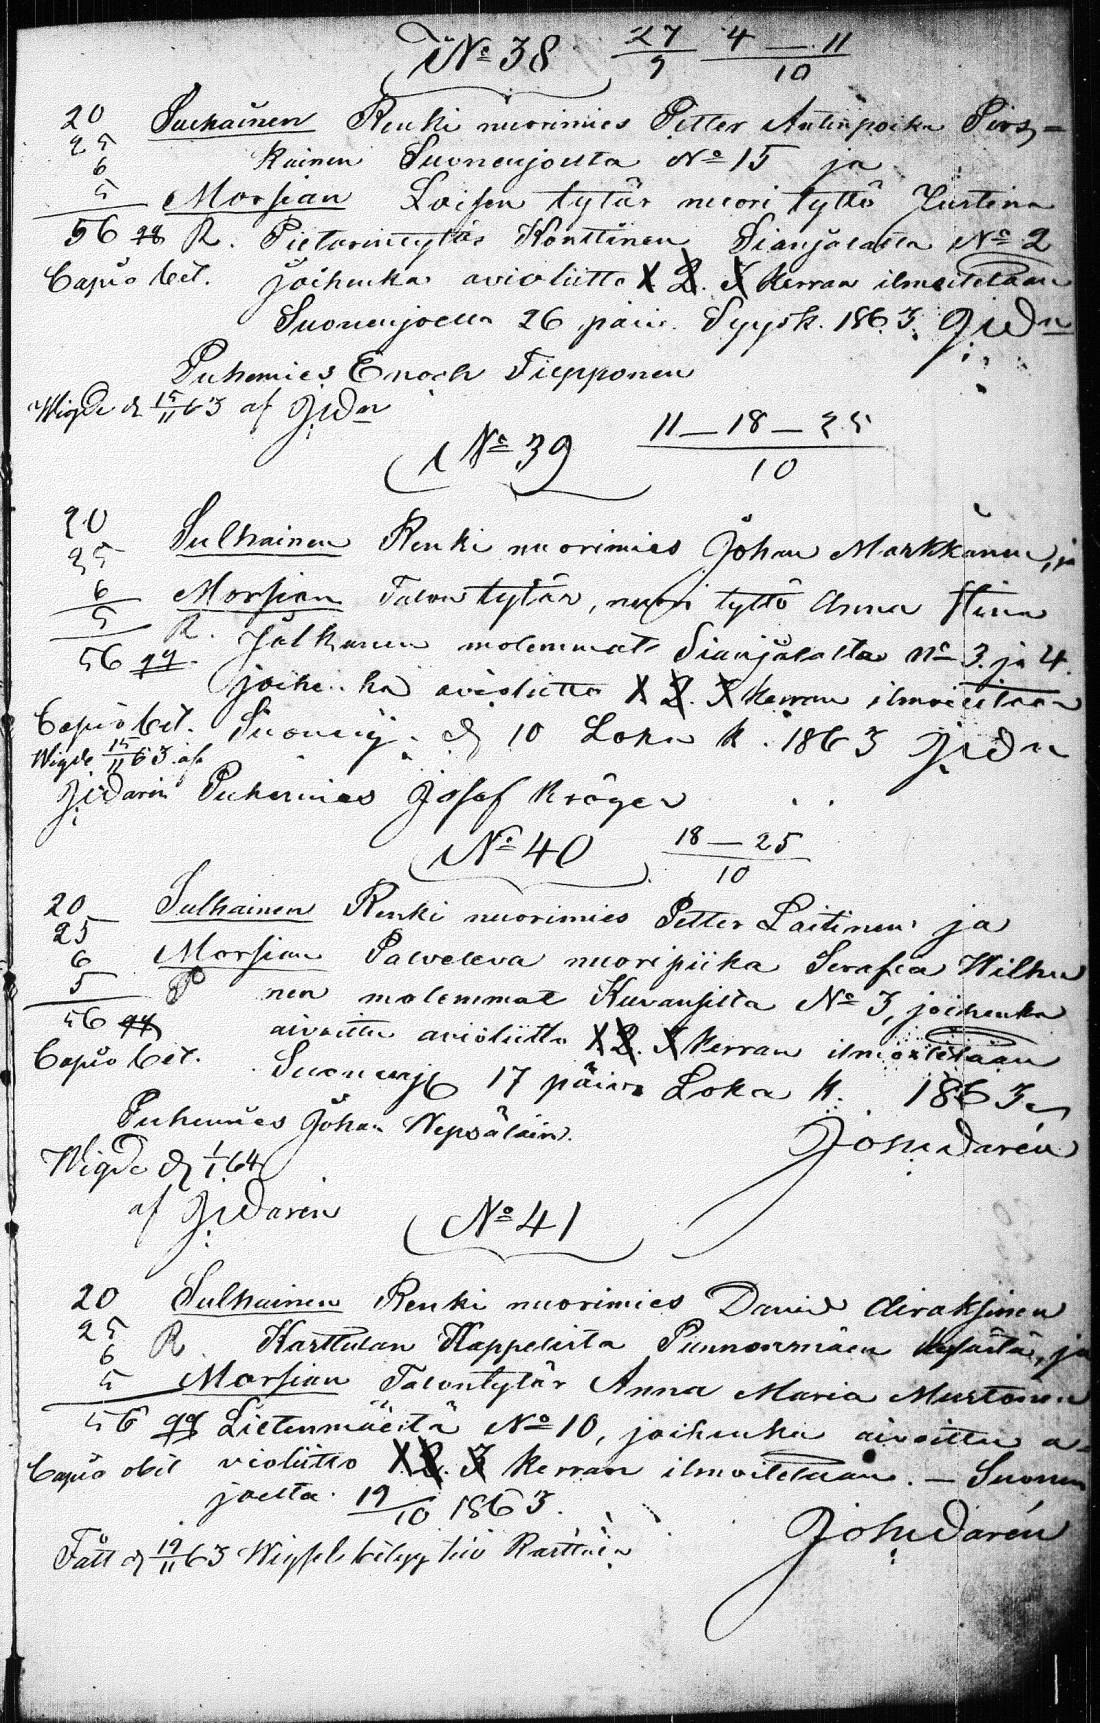 No 38 27/9 4 — 11/10
20 Sulhainen Renki nuorimies Petter Antinpoika Pirs-
25 kainen Suonenjoelta No 15 ja
6
5 Morsian Loisen tytär nuori tyttö Justina
56 R. Pietarintytär Konttinen Sianjalasta No 2
Capio bet. joihenka avioliitto X 2. 3 kerran ilmoitetaan
Suonenjoella 26 päiv. Syysk. 1863.
Puhemies Enoch Tiepponen
Wigde d 15/11 63 af
No 39 11 — 18 — 25/10
20 Sulhainen Renki nuorimies Johan Markkanen, ja
25
6 Morsian Talon tytär, nuori tyttö Anna Stina
5 R. Jalkanen molemmat Sianjalasta No 3. ja 4.
56 joihenka avioliitto X 2. 3 kerran ilmoitetaan
Capio bet. Suonenj. d 10 Loka k. 1863
Wigde 15/11 63 af
Jidarén Puhemies Josef Kröger
No 40 18 — 25/10
20 Sulhainen Renki nuorimies Petter Laitinen ja
25
6 Morsian Palveleva nuori piika Serafia Wilhu
5 nen molemmat Kuvansista No 3, joihenka
56 aivoittu avioliitto X 2. 3 kerran ilmoitetaan
Capio bet. Suonenj 17 päiv. Loka k. 1863.
Puhemies Johan Nepsäläin.
Joh. Darén
Wigde d 1/1 64
af Jidarén
No 41
20 Sulhainen Renki nuorimies David Airaksinen
25
6 R. Karttulan Kappelista Punnonmäen kylästä, ja
5 Morsian Talontytär Anna Maria Mustonen
56 Lietenmäeltä No 10, joihenka aivoittu a-
Capio obet violiitto X 2. 3 kerran ilmoitetaan. — Suonen
joella. 19/10 1863.
Joh. Darén
Fått d 19/11 63 Wigsel betyg